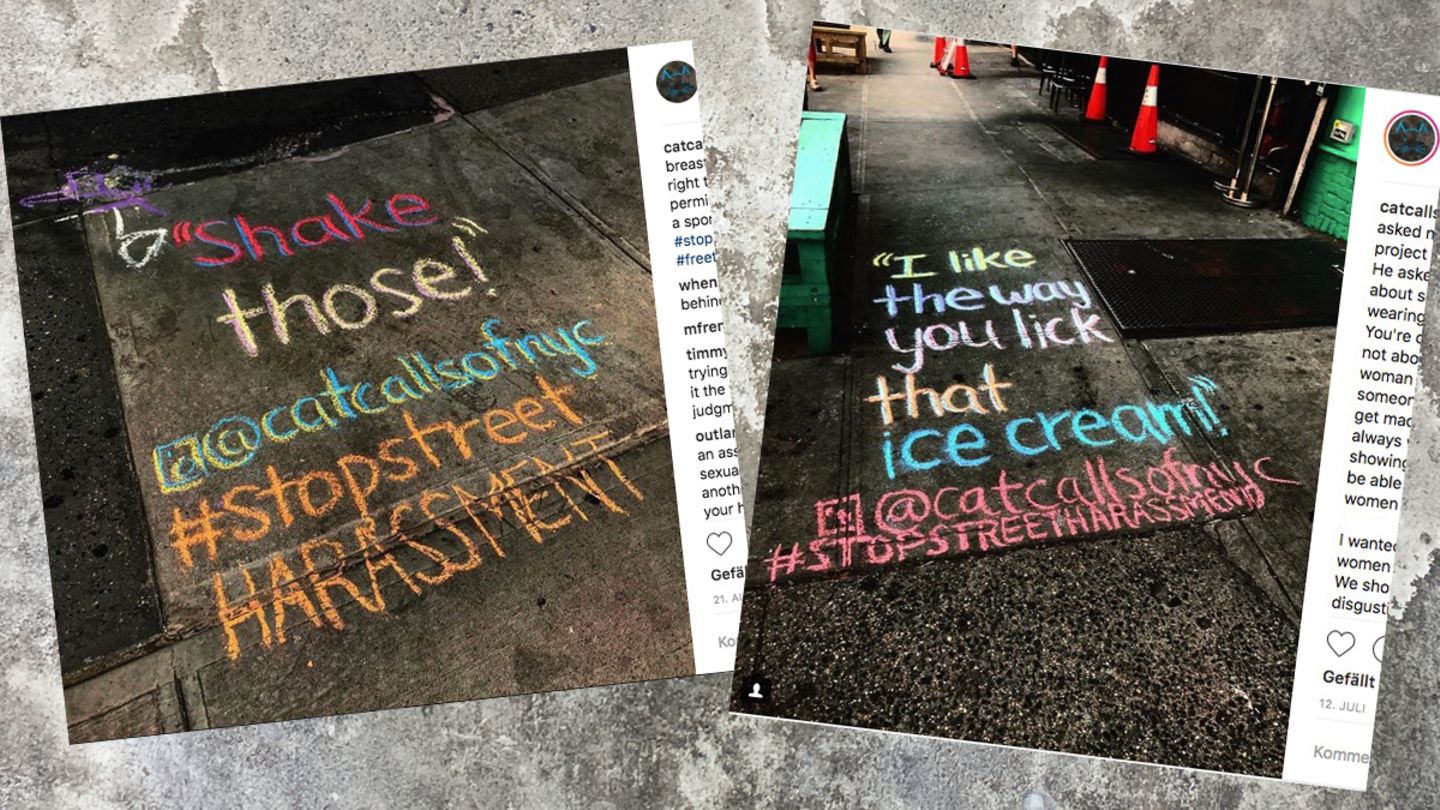 "Shake
those!"
@catcallsofnyc
#Stopstreet
HARASSMENT
catca
breas
right t
permi
a spor
#stop
#freet
when
behin
mfren
timmy
trying
it the
judgm
outlar
an ass
sexua
anoth
your h
Gefäl
21. AU
Kom
"I like
the way
you lick
that
ice cream!"
@catcallsofnyc
#STOPSTREETHARASSMENT
catcalls
asked m
project
He aske
about s
wearing
You're c
not abo
woman
someor
get mad
always
showing
be able
women
I wanted
women
We sho
disgusti
Gefällt
12. JULI
Komme